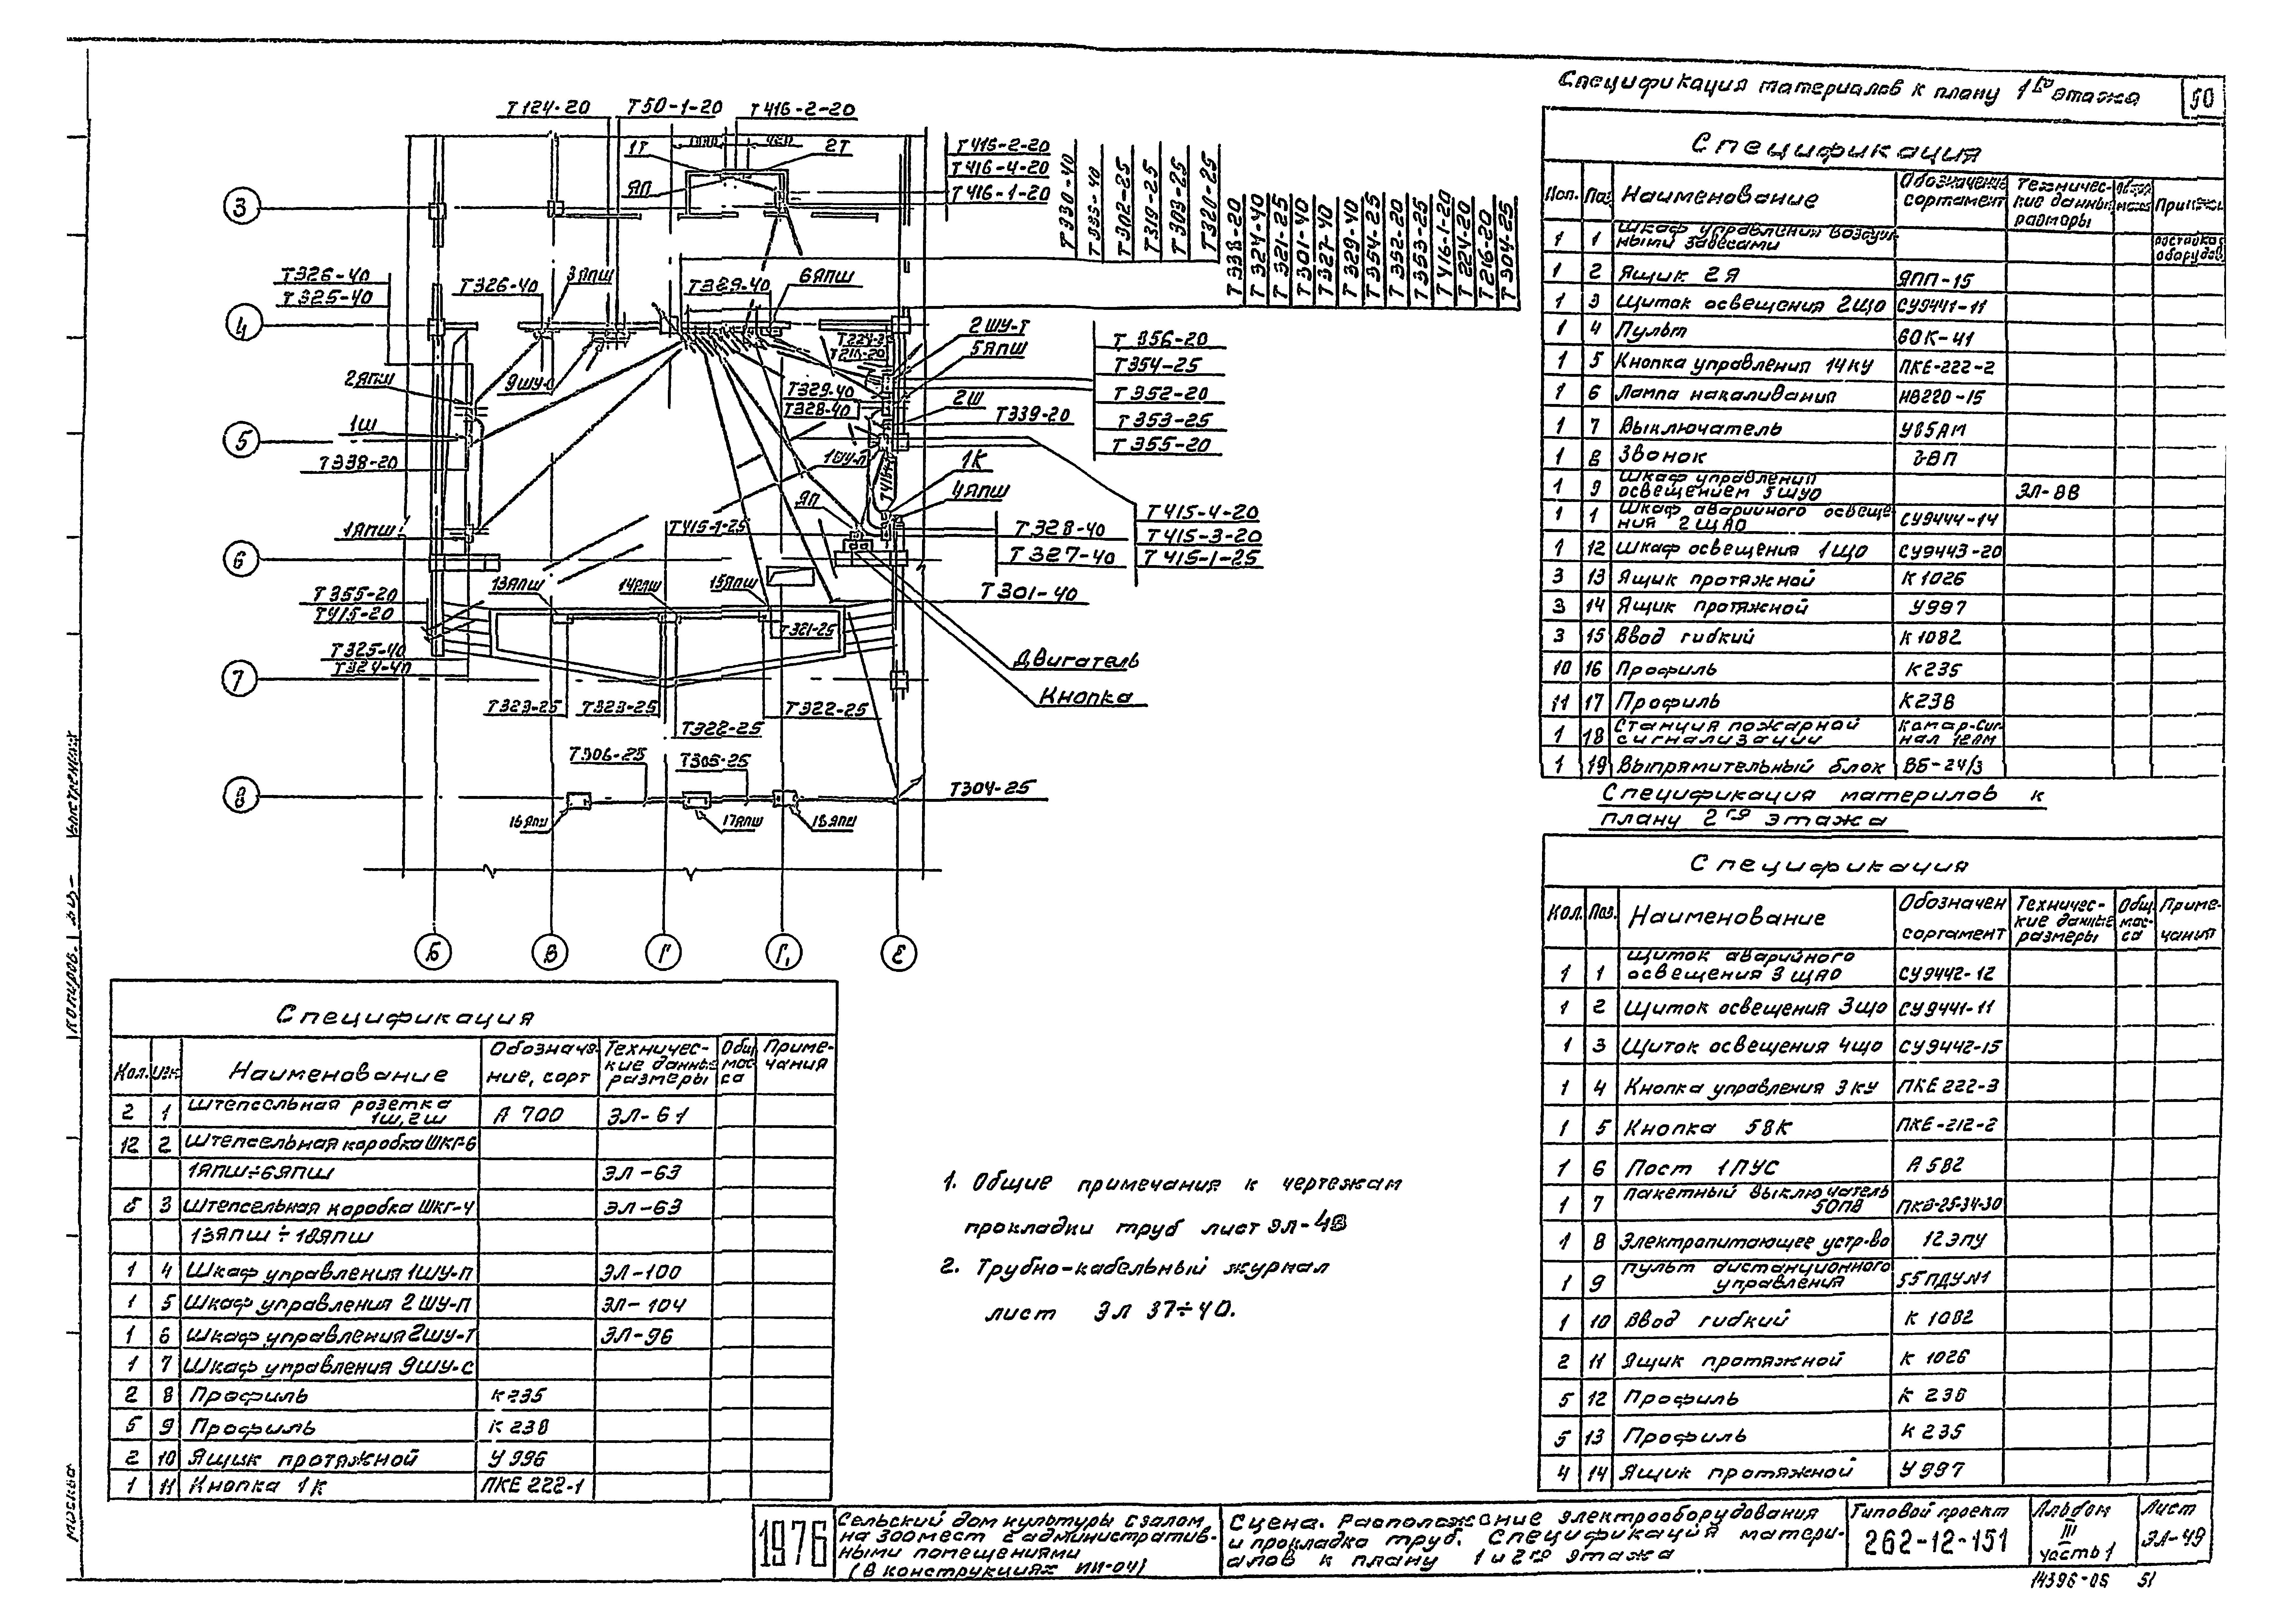 Спецификация материалов к плану 1го этажа
50
Т124-20
Т50-1-20
Т416-2-20
1Т
2Т
ЯП
Т415-2-20
Т416-4-20
Т416-1-20
Т330-40
Т335-40
Т302-25
Т319-25
Т303-25
Т320-25
Т338-20
Т324-40
Т321-25
Т301-40
Т327-40
Т329-40
Т354-25
Т352-20
Т353-25
Т416-1-20
Т224-20
Т216-20
Т304-25
3
Т326-40
Т325-40
Т326-40
3ЯПШ
Т329-40
6ЯПШ
4
2ШУ-Т
5ЯПШ
Т356-20
Т354-25
Т352-20
Т353-25
Т355-20
2ЯПШ
9ШУ-С
Т329-40
Т328-40
2Ш
Т339-20
1Ш
5
Т338-20
1ШУ-П
1К
4ЯПШ
ЯП
Т415-1-25
1ЯПШ
Т328-40
Т327-40
Т415-4-20
Т415-3-20
Т415-1-25
6
13ЯПШ
14ЯПШ
15ЯПШ
Т301-40
Т355-20
Т415-20
Т321-25
Т325-40
Т324-40
Двигатель
Кнопка
7
Т323-25
Т323-25
Т322-25
Т322-25
Т306-25
Т305-25
Т304-25
8
16ЯПШ
17ЯПШ
18ЯПШ
Б
В
Г
Г1
Е
Спецификация
Кол.
Поз.
Наименование
Обозначение сортамент
Техничес-
кие данные
размеры
1 1 Шкаф управления воздуш-
ными завесами
1 2 Ящик 2Я ЯПП-15
1 3 Щиток освещения 2ЩО СУ9441-11
1 4 Пульт 60К-41
1 5 Кнопка управления 14КУ ПКЕ-222-2
1 6 Лампа накаливания НВ220-15
1 7 Выключатель У85АМ
1 8 Звонок ЗВП
1 9 Шкаф управления
освещением 5ШУО ЭЛ-88
1 1 Шкаф аварийного освеще-
ния 2ЩАО СУ9444-14
1 12 Шкаф освещения 1ЩО СУ9443-20
3 13 Ящик протяжной К1026
3 14 Ящик протяжной У997
3 15 Ввод гибкий К1082
10 16 Профиль К235
11 17 Профиль К238
1 18 Станция пожарной
сигнализации
1 19 Выпрямительный блок ВБ-24/3
Спецификация материлов к
плану 2го этажа
Спецификация
Кол. Поз. Наименование
Обозначен
соргамент
Техничес-
кие данные
размеры
Общ.
мас-
са
Приме-
чания
1 1 Щиток аварийного
освещения 3ЩАО СУ9442-12
1 2 Щиток освещения 3ЩО СУ9441-11
1 3 Щиток освещения 4ЩО СУ9442-15
1 4 Кнопка управления 3КУ ПКЕ222-3
1 5 Кнопка 58К ПКЕ-212-2
1 6 Пост 1ПУС А582
1 7 Пакетный выключатель
50ПВ ПКВ-25-34-30
1 8 Электропитающее устр-во 12ЭПУ
1 9 Пульт дистанционного
управления 55ПДУ№1
1 10 Ввод гибкий К1082
2 11 Ящик протяжной К1026
5 12 Профиль К238
5 13 Профиль К235
4 14 Ящик протяжной У997
Спецификация
Кол.
Наименование
Обозначе-
ние, сорт
Техничес-
кие данные
размеры
Общ.
мас-
са
Приме-
чания
2 1 Штепсельная розетка
1Ш, 2Ш А700 ЭЛ-61
12 2 Штепсельная коробка ШКГ-6
1ЯПШ÷6ЯПШ ЭЛ-63
6 3 Штепсельная коробка ШКГ-4 ЭЛ-63
13ЯПШ÷18ЯПШ
1 4 Шкаф управления 1ШУ-П ЭЛ-100
1 5 Шкаф управления 2ШУ-П ЭЛ-104
1 6 Шкаф управления 2ШУ-Т ЭЛ-96
1 7 Шкаф управления 9ШУ-С
2 8 Профиль К235
5 9 Профиль К238
2 10 Ящик протяжной У996
1 11 Кнопка 1К ПКЕ222-1
1. Общие примечания к чертежам
прокладки труб лист ЭЛ-48
2. Трубно-кабельный журнал
лист ЭЛ 37÷40.
1976
Сельский дом культуры с залом
на 300 мест с административ-
ными помещениями
(в конструкциях ИИ-04)
Сцена. Расположение электрооборудования
и прокладка труб. Спецификация матери-
алов к плану 1 и 2го этажа
Типовой проект
262-12-151
Альбом
III
часть 1
Лист
ЭЛ-49
14396-05 51
Москва